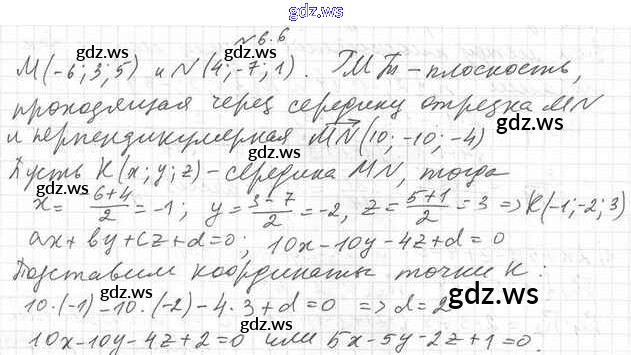 gdz.ws
№6.6
gdz.ws
M(-6; 3; 5) и N(4; -7; 1). ГМТ - плоскость,
проходящая через середину отрезка MN
gdz.ws
и перпендикулярная MN(10; -10; -4)
Пусть K(x; y; z) - середина MN, тогда
gdz.ws
x = 6+4/2 = -1; y = 3-7/2 = -2, z = 5+1/2 = 3 => K(-1; -2; 3)
ax + by + cz + d = 0; 10x - 10y - 4z + d = 0
Подставим координаты точки K:
gdz.ws
10·(-1) - 10·(-2) - 4·3 + d = 0 => d = 2
10x - 10y - 4z + 2 = 0 или 5x - 5y - 2z + 1 = 0.
gdz.ws